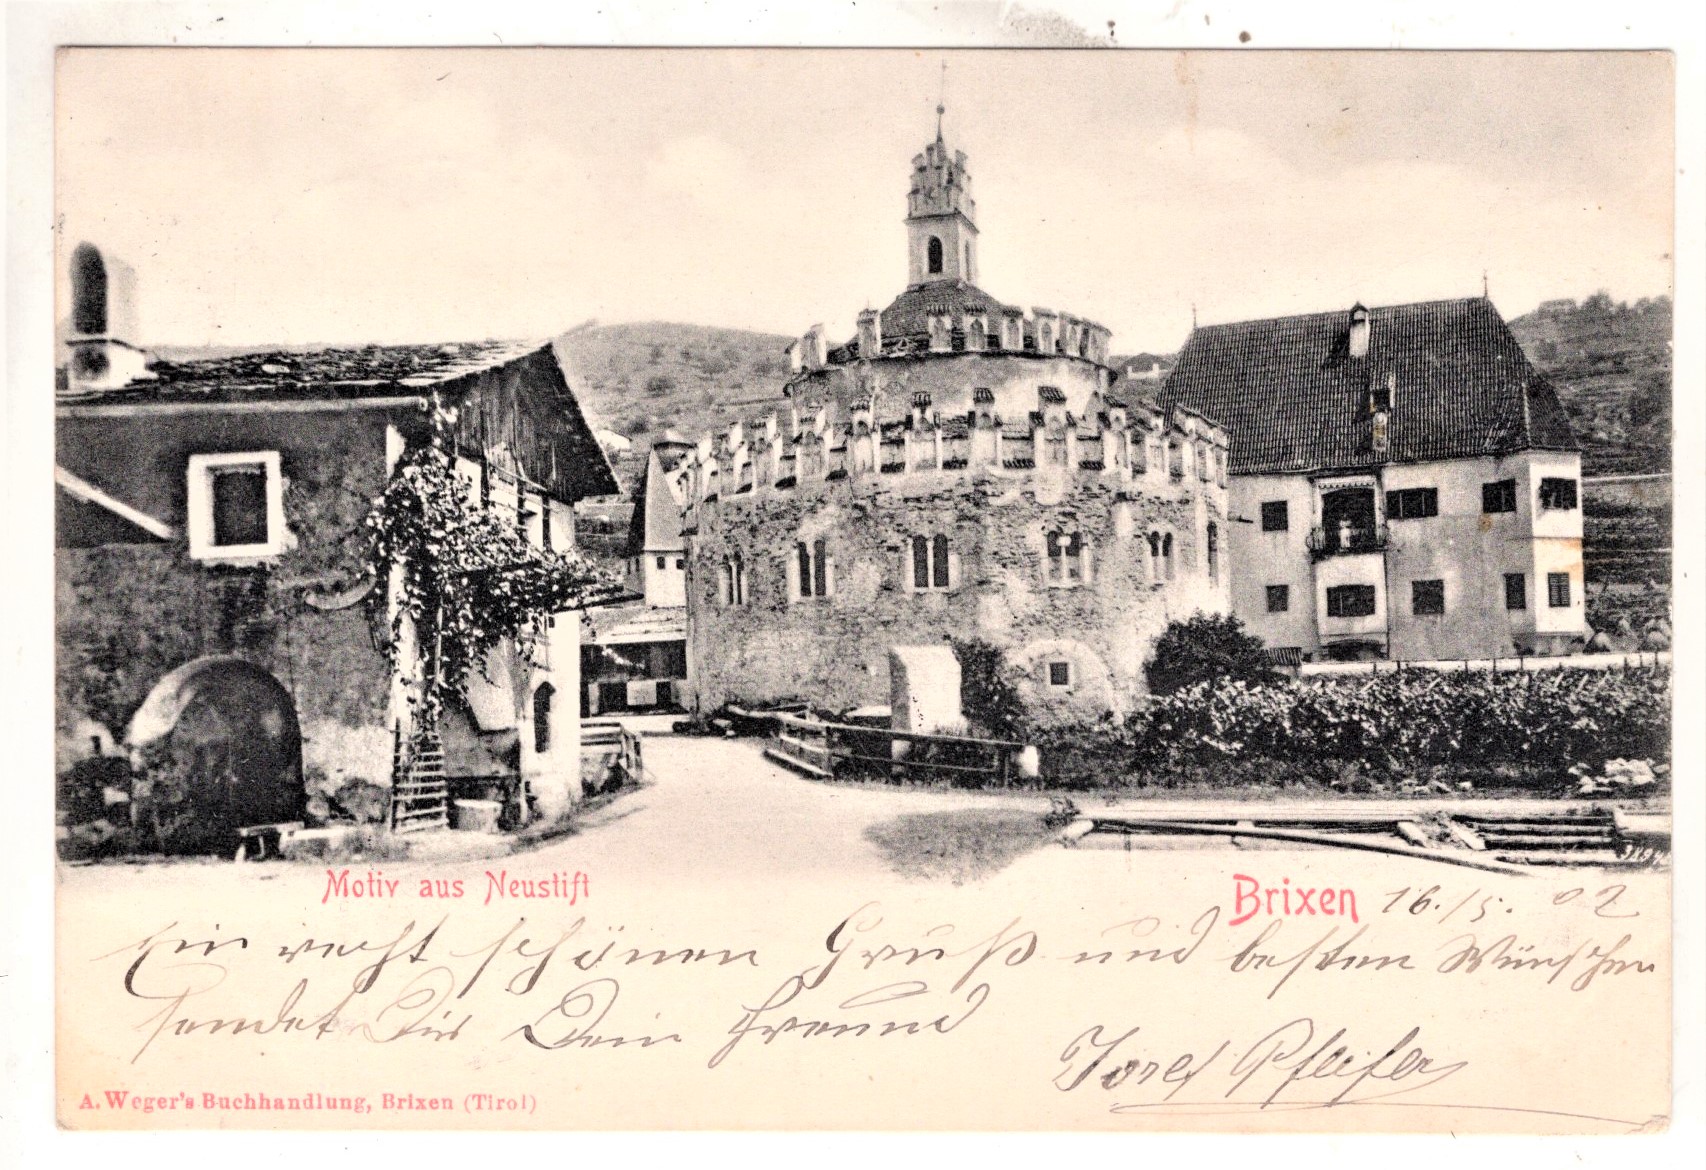 Motiv aus Neustift
Brixen 16./5. 02
Ein recht schönen Gruß und besten Wünschen
sendet Dir Dein Freund
Josef Pfeifer
A. Weger's Buchhandlung, Brixen (Tirol)